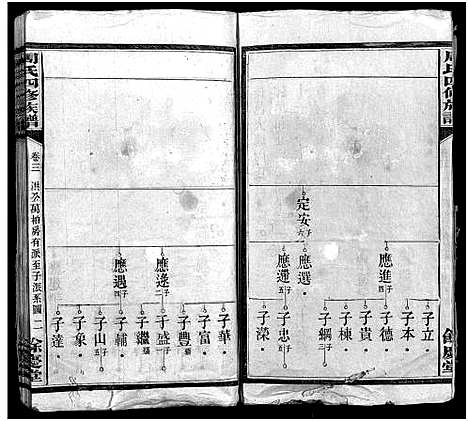 周氏四修族譜
定安 子六
應進 子四
應選
應還 子五
子立
子本
子德
子貴
子棟
子綱 子三
子忠 子五
子榮
餘慶堂
應逵 子二
應遇 子四
子華
子富
子豐
子盛 子一
子繼
子輔
子山 子五
子象
子達
周氏四修族譜
卷三 洪公萬柏房有派至子派系圖 二
餘慶堂